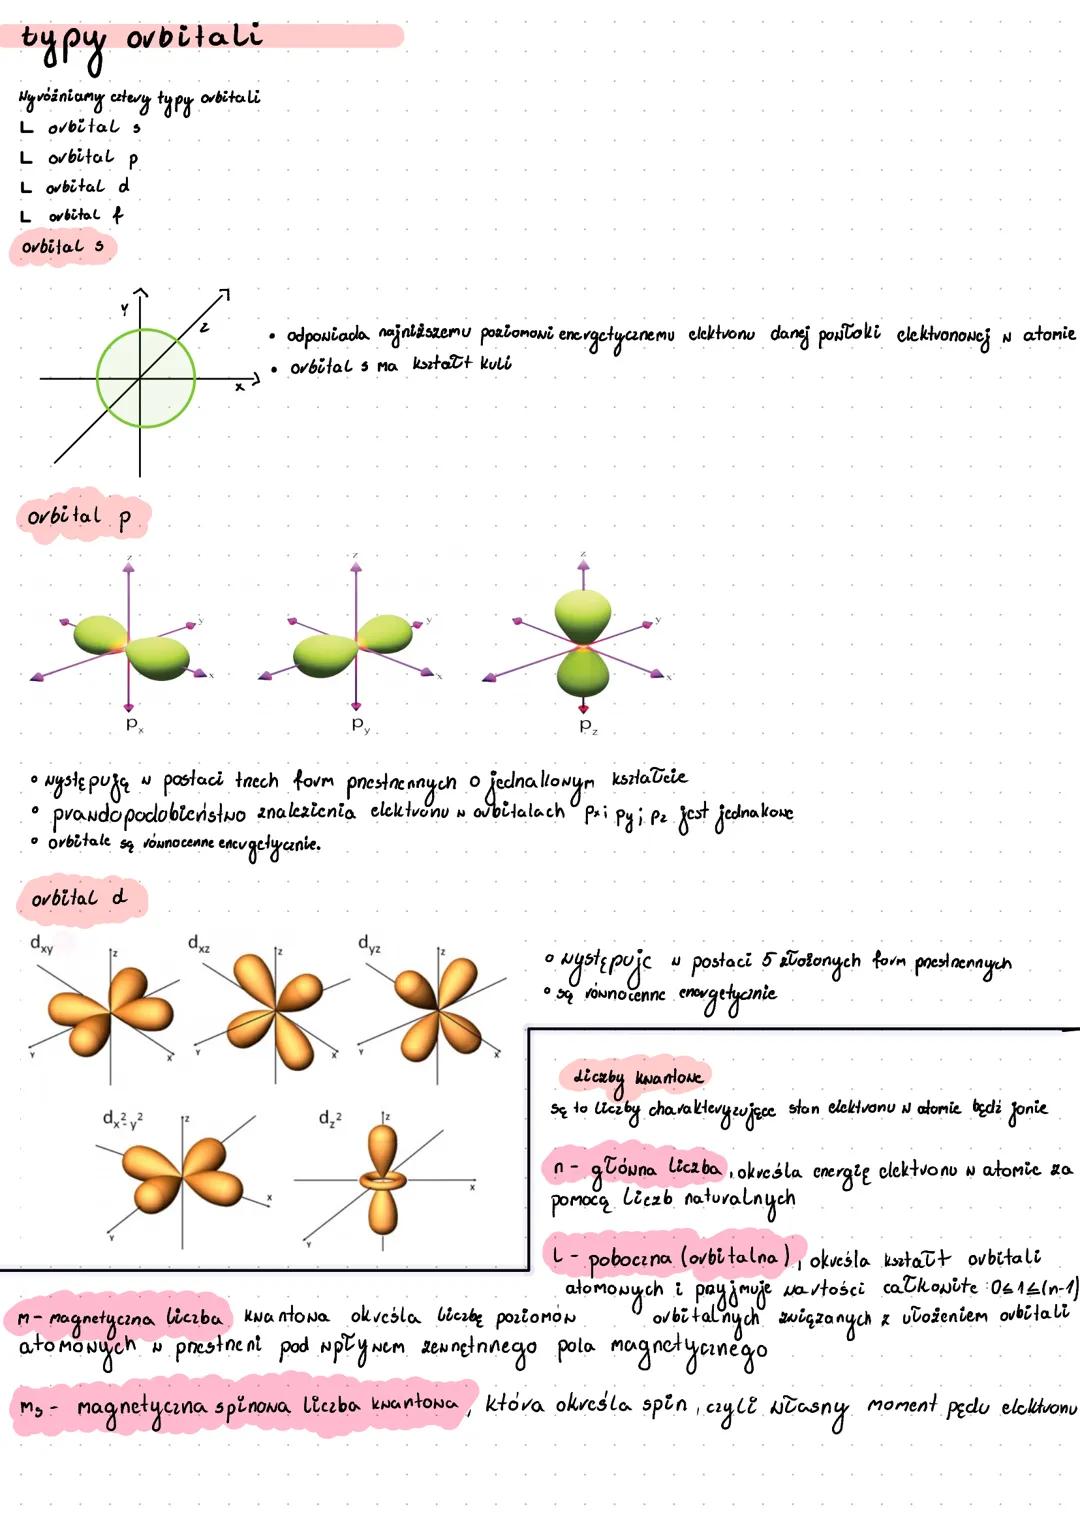 typy orbitali
Wyróżniamy cztery typy orbitali
L orbital s
L orbital p
L orbital d
L orbital f
orbital s
Y
z
x
• odpowiada najniższemu poziomowi energetycznemu elektronu danej powłoki elektronowej w atomie
• orbital s ma kształt kuli
orbital p
z z z
y y y
x x x
px py pz
• występują w postaci trzech form przestrzennych o jednakowym kształcie
• prawdopodobieństwo znalezienia elektronu w orbitalach px i py i pz jest jednakowe
• orbitale są równocenne energetycznie.
orbital d
dxy dxz dyz
z z z
Y X Y X Y X
• występuje w postaci 5 złożonych form przestrzennych
• są równocenne energetycznie
dx²-y² dz²
z z
Y X Y X
Liczby kwantowe
są to liczby charakteryzujące stan elektronu w atomie bądź jonie
n - główna liczba, określa energię elektronu w atomie za
pomocą liczb naturalnych
L - poboczna (orbitalna), określa kształt orbitali
atomowych i przyjmuje wartości całkowite 0≤1≤(n-1)
m - magnetyczna liczba kwantowa określa liczbę poziomów orbitalnych związanych z ułożeniem orbitali
atomowych w przestrzeni pod wpływem zewnętrznego pola magnetycznego
ms - magnetyczna spinowa liczba kwantowa, która określa spin, czyli własny moment pędu elektronu